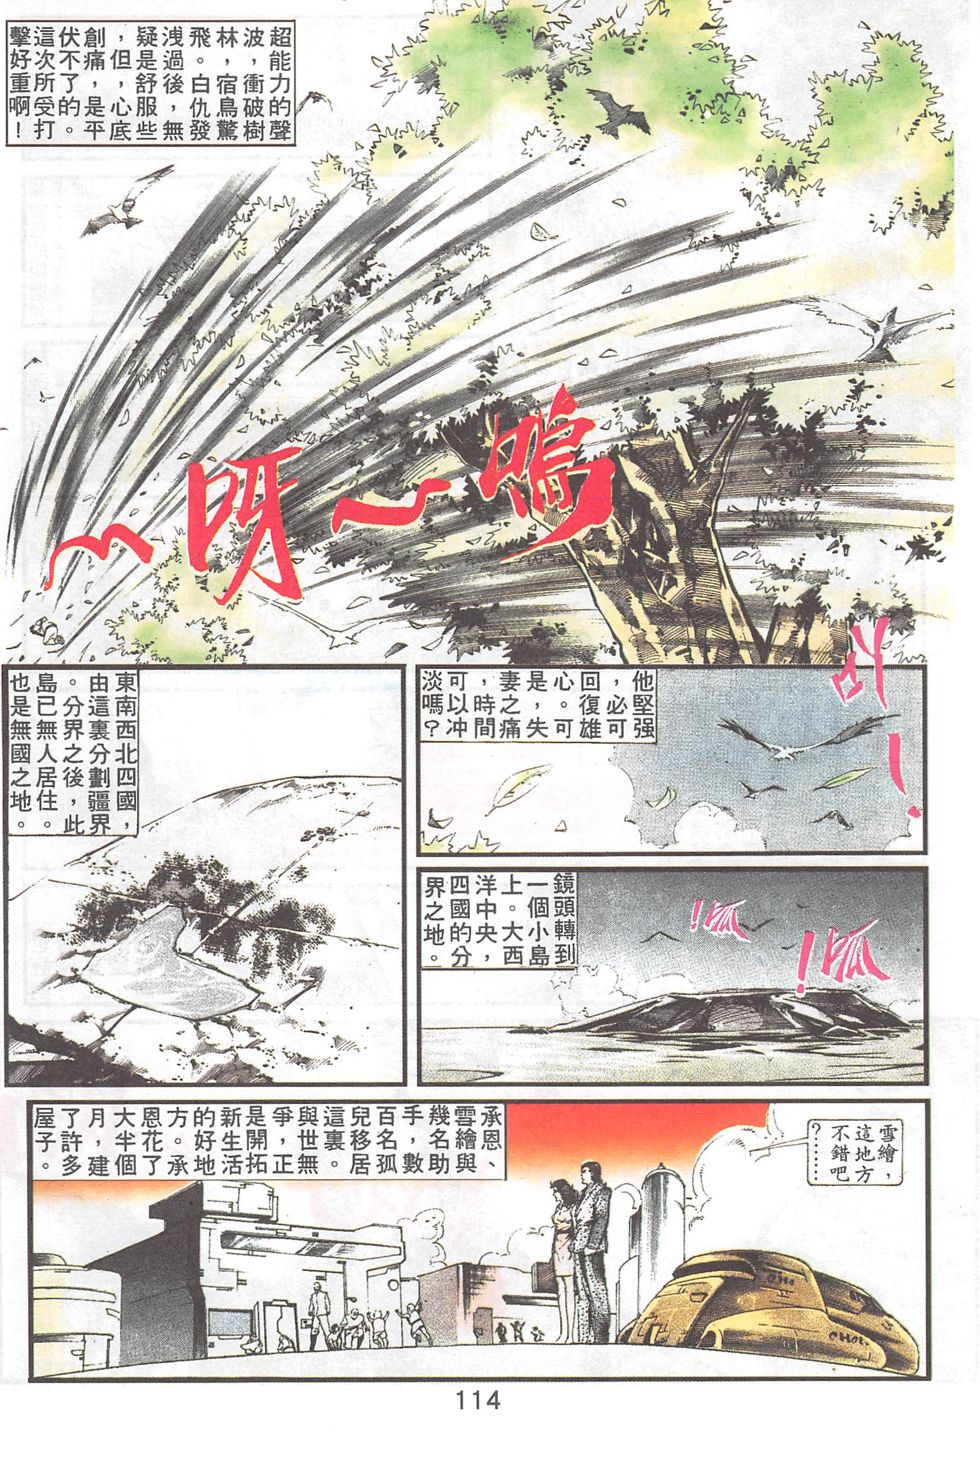 超能力的聲
波，衝破樹
林，宿鳥驚
飛。白仇發
洩過後，無
疑是舒服些
，但，心底
創痛，是平
伏不了的。
這次所受打
擊好重啊！
嗚～呀～
他堅强
，必可
回復雄
心。可
是，失
妻之痛
，時間
可以冲
淡嗎？
鏡頭轉到
一個小島
上。大西
洋中央，
四國的分
界之地。
呱！
呱！
東南西北四國，
由這裏分劃疆界
。分界之後，此
島已無人居住。
也是無國之地。
承恩、
雪繪與
幾名助
手，數
百名孤
兒移居
這裏。
與世無
爭，正
是開拓
新生活
的好地
方。承
恩花了
大半個
月，建
了許多
屋子。
雪繪，
這地方
不錯吧
？……
CHOI
114